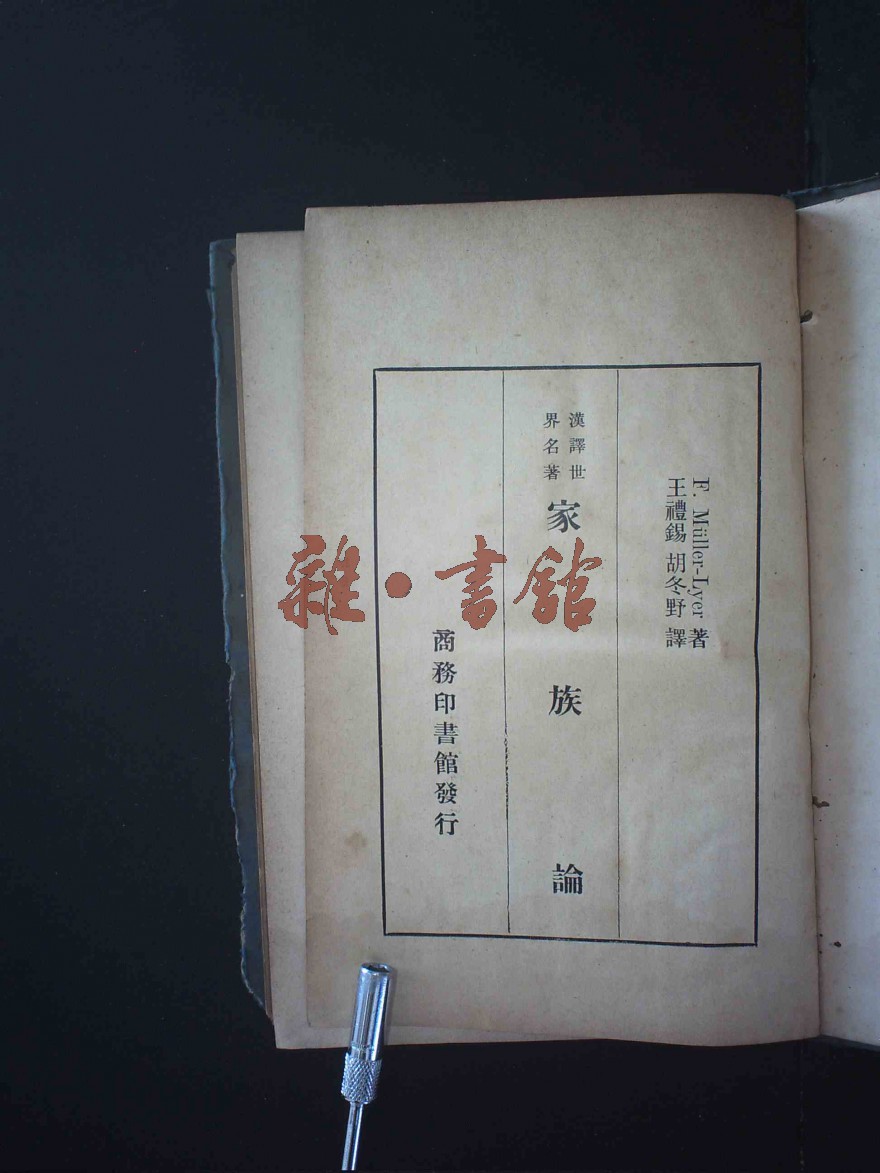 F. Müller-Lyer 著
王禮錫 胡冬野 譯
漢譯世
界名著
家族論
商務印書館發行
雜·書館